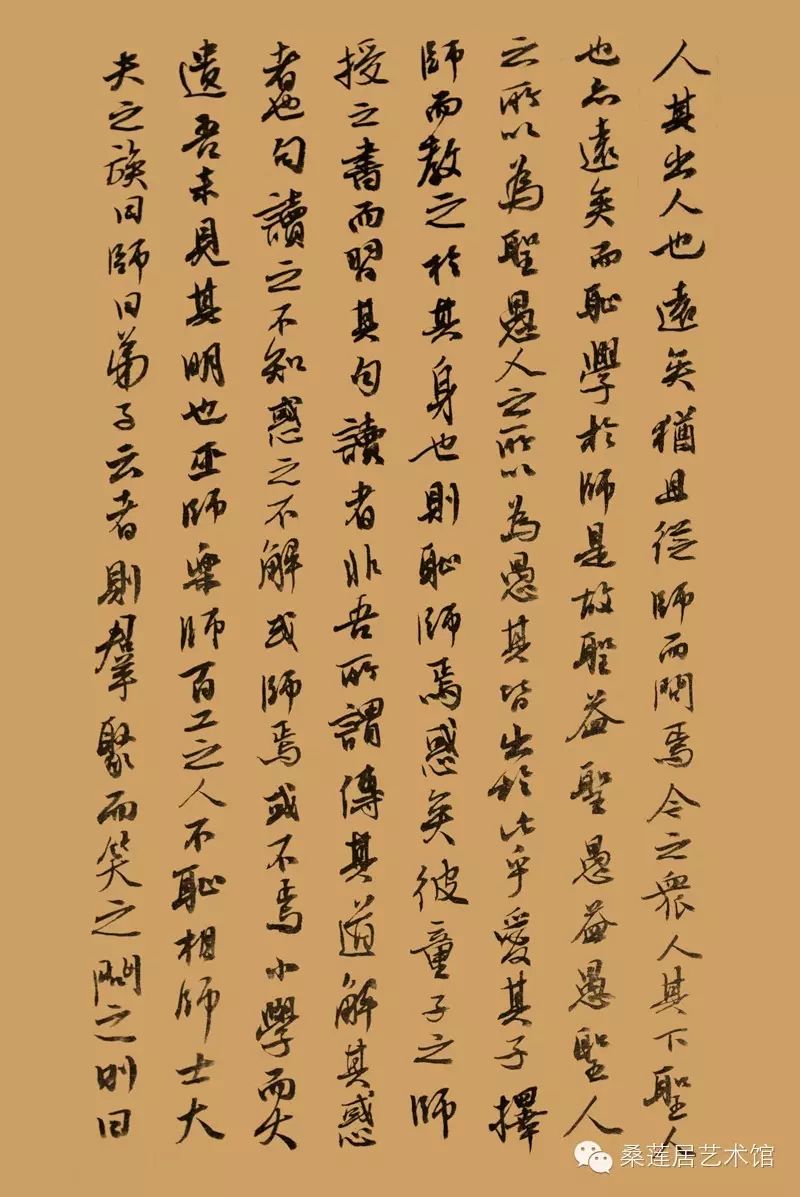 人其出人也遠矣猶且從師而問焉今之眾人其下聖人
也亦遠矣而恥學於師是故聖益聖愚益愚聖人
之所以為聖愚人之所以為愚其皆出於此乎愛其子擇
師而教之於其身也則恥師焉惑矣彼童子之師
授之書而習其句讀者非吾所謂傳其道解其惑
者也句讀之不知惑之不解或師焉或不焉小學而大
遺吾未見其明也巫師樂師百工之人不恥相師士大
夫之族曰師曰弟子云者則群聚而笑之問之則曰
桑莲居艺术馆